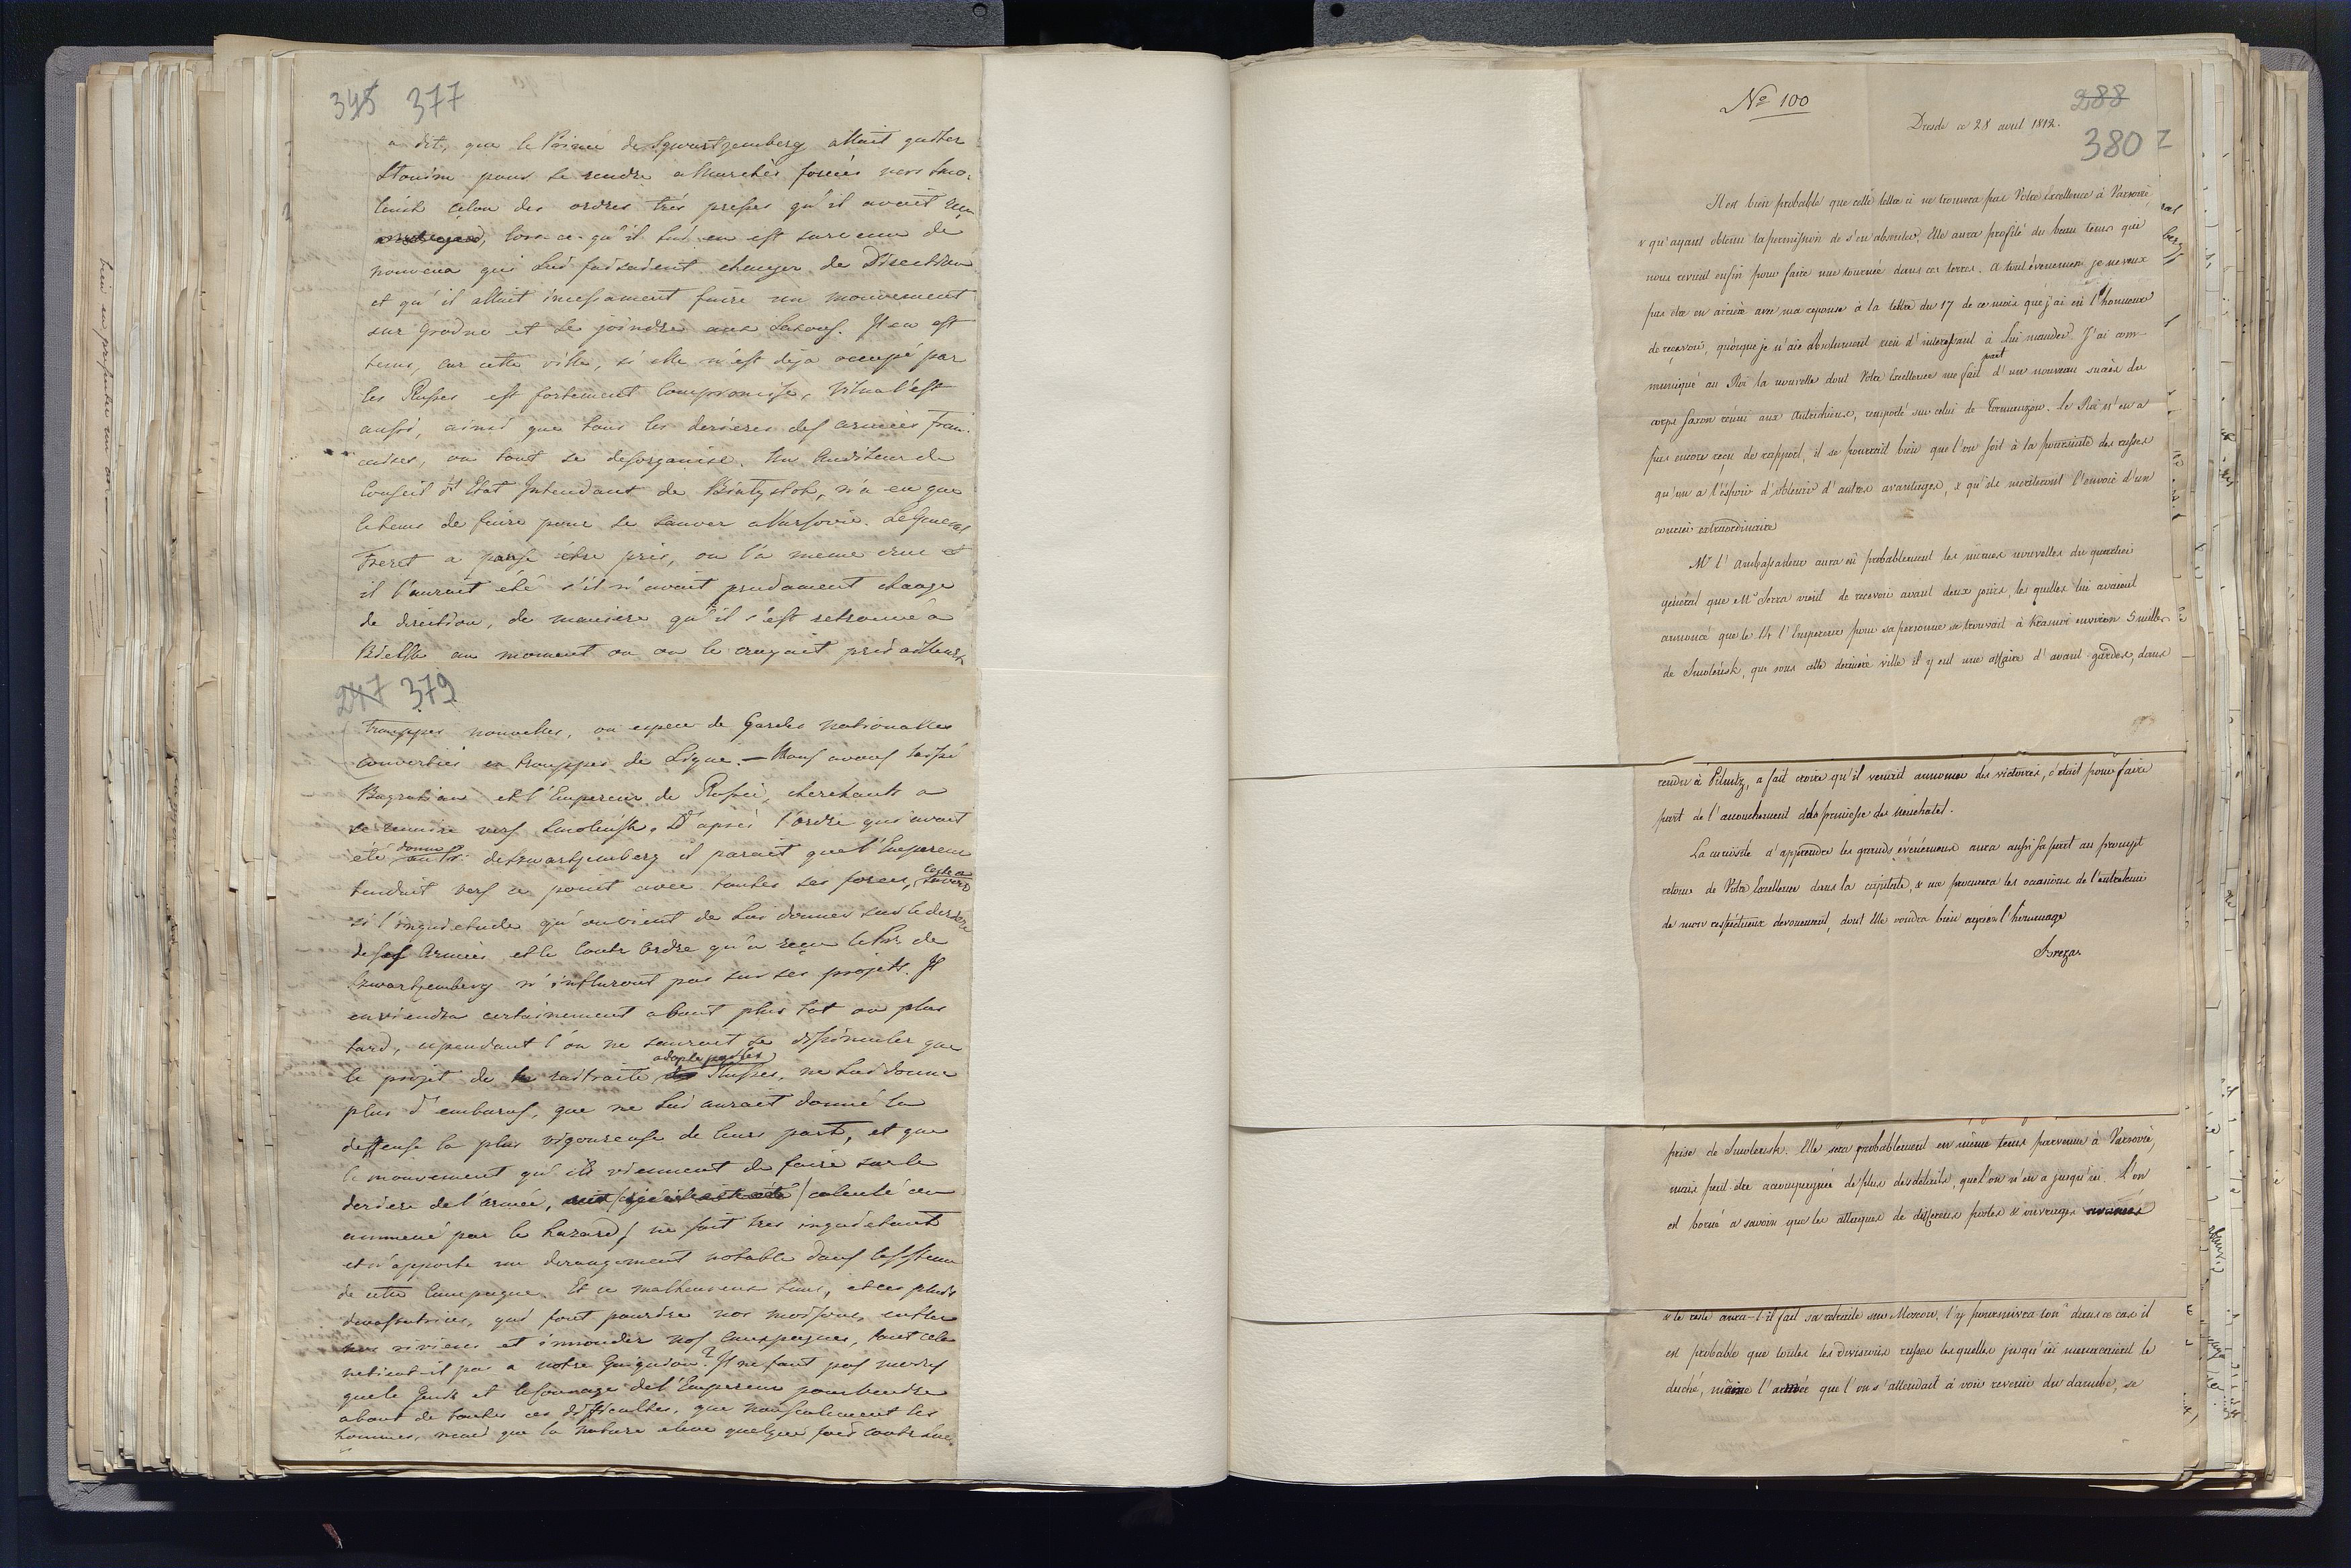 345 377
a dit, que le Prince de Sqwartzemberg allait quitter
Slonim pour se rendre a Marches forcées vers Smo-
lensk selon des ordres très presses qu'il avait reçu
lors ce qu'il lui en est survenu de
nouveaux qui lui faisaient changer de Direction
et qu'il allait incessament faire un mouvement
sur Grodno et se joindre aux Saxons. Il en est
tems, car cette ville, si elle n'est deja occupé par
les Russes est fortement compromise, Vilna l'est
aussi, ainsi que tous les derieres des armées Fran-
caises, ou tout se desorganise. Un Auditeur du
Conseil d'Etat Intendant de Bialystok, n'a eu que
le tems de fuire pour se sauver a Varsovie. Le General
Ferret a passe être pris, on l'a meme crue et
il l'aurait été s'il n'avait prudament change
de direction, de maniere qu'il s'est retrouvé a
Bielsk au moment ou on le croyait pris ailleurs
247 379
Trouppes nouvelles, ou espece de Gardes nationalles
converties en trouppes de Ligne. — Nous avons laissé
Bagration et l'Empereur de Russie, cherchants a
se reunire vers Smolensk. D'après l'ordre qui avait
été donné de Szwartzemberg il parait que l'Empereur
tendait vers ce point avec toutes ses forces, reste a savoir
si l'inquietude qu'on vient de lui donner sur le derriere
de ses Armées et le contr'ordre qu'a reçu le Pr. de
Szwartzemberg n'influront pas sur ses projets. Il
en viendra certainement about plus tot ou plus
tard, cependant l'on ne saurait se dissimuler que
le projet de retraite adopté par les Russes, ne lui donne
plus d'embaras, que ne lui aurait donné la
deffense la plus vigoureuse de leurs part, et que
le mouvement qu'ils viennent de faire sur le
deriere de l'armée, calculé ou
ammené par le hazard / ne soit tres inquietant
et n'apporte un derangement notable dans le sisteme
de cette Campagne. Et ce malheureux tems, et ces pluies
devastatrices, qui font pourire nos moissons, enfler
nos rivieres et innonder nos Campagnes, tout cela
netient-il pas a notre Guignon? Il ne faut pas moins
que le Genie et le courage de l'Empereur pour vendre
about de toutes ces difficultes, que non seulement les
hommes, mais que la Nature eleve quelque fois contre lui.
No 100
288
Dresde ce 28 aout 1812.
380
Il est bien probable que cette lettre ci ne trouvera pas Votre Excellence à Varsovie,
& qu'ayant obtenu la permission de s'en absenter, Elle aura profité du beau tems qui
nous revient enfin pour faire une tournée dans ces terres. A tout évenement je ne veux
pas être en arrière avec ma reponse à la lettre du 17 de ce mois que j'ai eû l'honneur
de recevoir, quoique je n'aie absolument rien d'interessant à Lui mander. J'ai com-
muniqué au Roi la nouvelle dont Votre Excellence me fait part d'un nouveau succès du
corps Saxon réuni aux Autrichiens, remporté sur celui de Tormenzow. Le Roi n'en a
pas encore reçu de rapport, il se pourrait bien que l'on soit à la poursuite des russes
qu'on a l'espoir d'obtenir d'autres avantages, & qu'ils mériteront l'envoie d'un
courier extraordinaire
Mr l'Ambassadeur aura eû probablement les mêmes nouvelles du quartier
général que Mr Serra vient de recevoir avant deux jours, les quelles lui avaient
annoncé que le 14 l'Empereur pour sa personne se trouvait à Krasnoi environ 5 milles
de Smolensk, que sous cette dernière ville il y eut une affaire d'avant-gardes, dans
rendre à Pilnitz, a fait croire qu'il venait annoncer des victoires, c'était pour faire
part de l'accouchement de la princesse de Neuchatel.
La curiosité d'apprendre les grands évènemens aura aussi sa part au prompt
retour de Votre Excellence dans la capitale, & me procurera les occasions de l'entretenir
de mon respectueux devouement, dont Elle voudra bien agréer l'hommage
Breza
prise de Smolensk. Elle sera probablement en même tems parvenue à Varsovie,
mais peut être accompagnée de plus de détails, que l'on n'en a jusqu'ici. L'on
est borné a savoir que les attaques de differens postes & ouvrages avancés
& le reste aura-t-il fait sa retraite sur Moscou, l'y poursuivra-t-on? dans ce cas il
est probable que toutes les divisions russes lesquelles jusqu'ici menaceraient le
duché, même l'armée que l'on s'attendait à voir revenir du danube, se